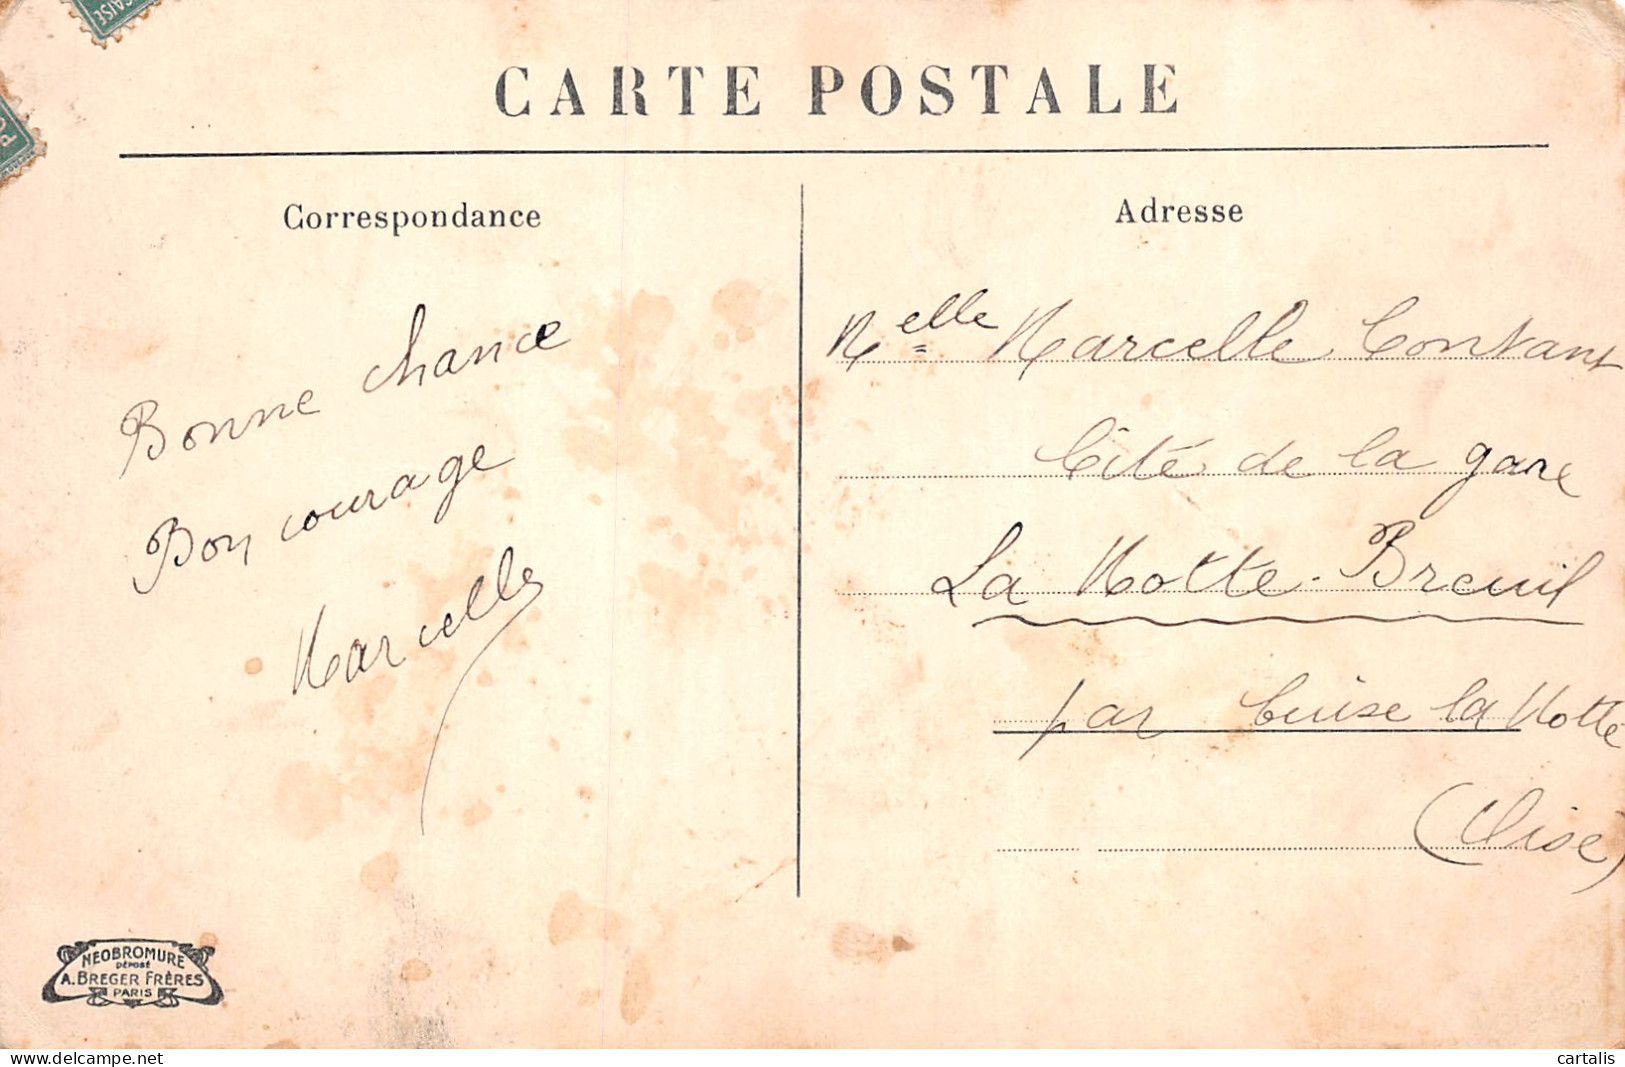 CARTE POSTALE
Correspondance
Adresse
Bonne chance
Bon courage
Marcelle
Melle Marcelle Contant
Cité de la gare
La Motte-Breuil
par Cuise la Motte
(Oise)
NEOBROMURE
DÉPOSÉ
A. BREGER FRÈRES
PARIS
delcampe.net
cartalis